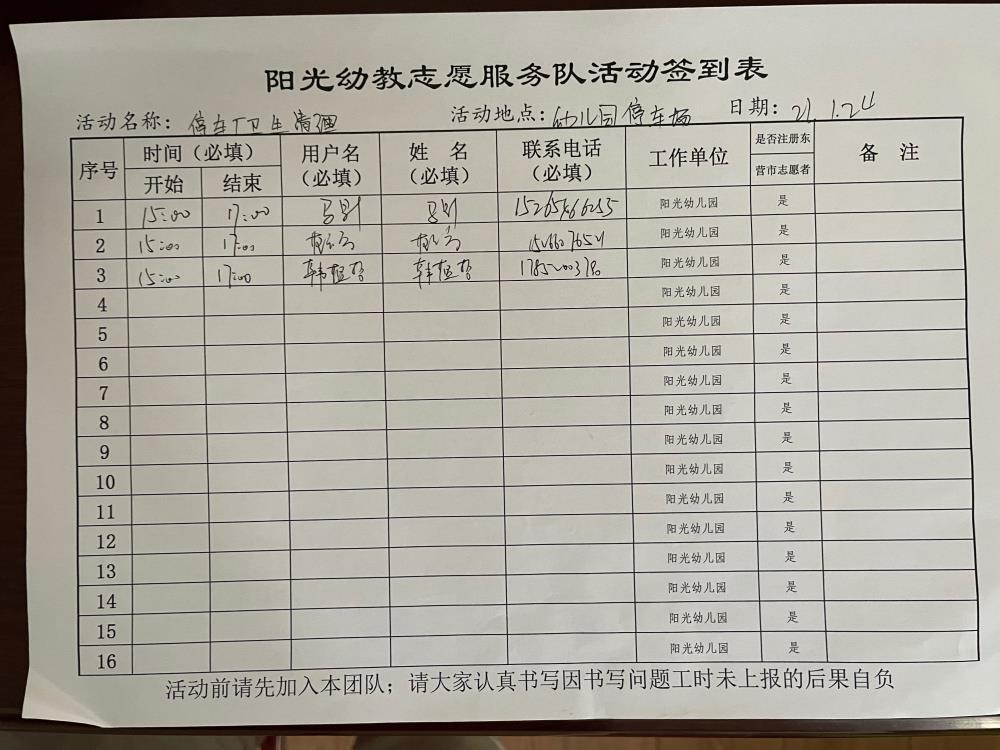 阳光幼教志愿服务队活动签到表
活动名称：停车厂卫生清理 活动地点：幼儿园停车场 日期：21.1.24
序号 时间（必填） 用户名（必填） 姓名（必填） 联系电话（必填） 工作单位 是否注册东营市志愿者 备注
开始 结束
1 15:00 17:00 阳光幼儿园 是
2 15:00 17:00 阳光幼儿园 是
3 15:00 17:00 阳光幼儿园 是
4 阳光幼儿园 是
5 阳光幼儿园 是
6 阳光幼儿园 是
7 阳光幼儿园 是
8 阳光幼儿园 是
9 阳光幼儿园 是
10 阳光幼儿园 是
11 阳光幼儿园 是
12 阳光幼儿园 是
13 阳光幼儿园 是
14 阳光幼儿园 是
15 阳光幼儿园 是
16 阳光幼儿园 是
活动前请先加入本团队；请大家认真书写因书写问题工时未上报的后果自负